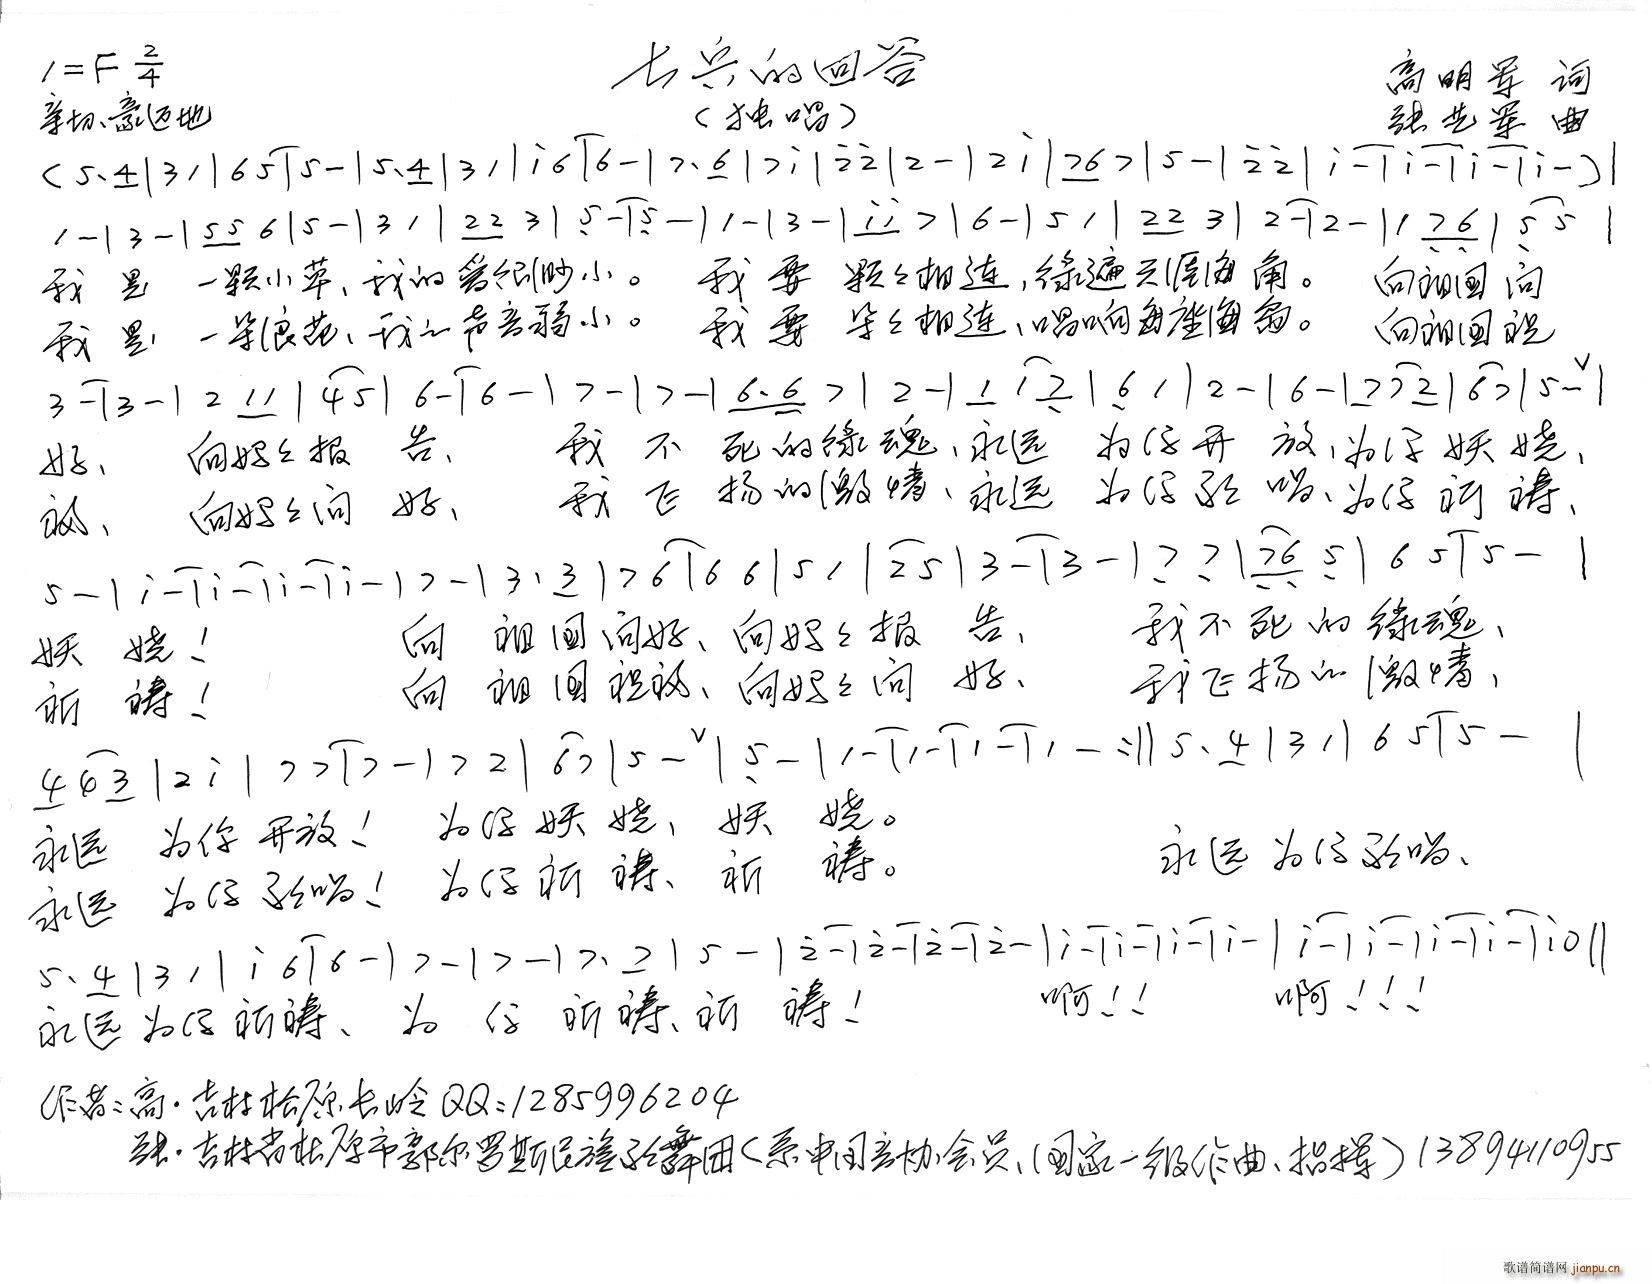 1=F 2/4
士兵的回答
高明军 词
亲切、豪迈地
(独唱)
张先军 曲
(5.4|31|65|5-|5.4|31|i6|6-|7.6|7i|22|2-|2i|767|5-|22|i-|i-|i-|i-)|
1-|3-|556|5-|31|223|5-|5-|1-|3-|ii7|6-|51|223|2-|2-|176|55|
我是一颗小草、我的 渺小。我要颗々相连,绿遍天涯海角。向祖国问
我是一朵浪花、我的声音弱小。我要朵々相连、唱响每座海岛。向祖国祝
3-|3-|211|45|6-|6-|7-|7-|6.67|2-|112|61|2-|6-|772|67|5-ˇ|
好、向妈々报告、我不死的绿魂、永远为你开放,为你妖娆、
福、向妈々问好、我飞扬的激情、永远为你歌唱、为你祈祷、
5-|i-|i-|i-|i-|7-|3.3|76|66|51|25|3-|3-|77|765|65|5-|
妖娆! 向祖国问好、向妈々报告、我不死的绿魂、
祈祷! 向祖国祝福、向妈々问好、我飞扬的激情、
463|2i|77|7-|72|67|5-ˇ|5-|1-|1-|1-|1-:||5.4|31|65|5-|
永远为你开放! 为你妖娆、妖娆。
永远为你歌唱! 为你祈祷、祈祷。 永远为你歌唱、
5.4|31|i6|6-|7-|7-|7.7|5-|2-|2-|2-|2-|i-|i-|i-|i-|i-|i-|i-|i-|i0||
永远为你祈祷、为你祈祷、祈祷! 啊!! 啊!!!
作者:高·吉林松原长岭QQ:1285996204
张·吉林省松原市郭尔罗斯民族歌舞团(系中国音协会员、国家一级作曲、指挥)13894110955
歌谱简谱网
jianpu.cn